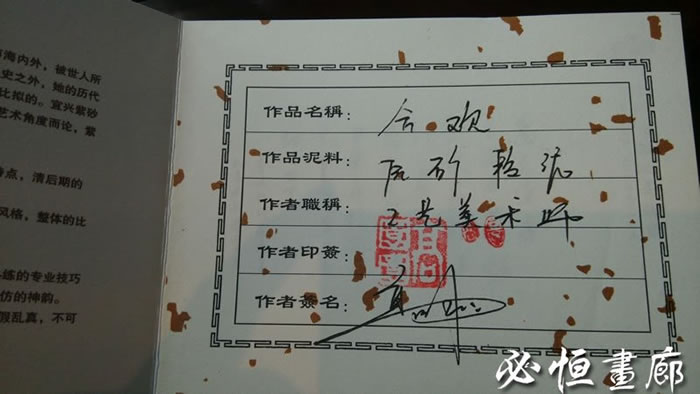 海内外，被世人所
史之外，她的历代
比拟的。宜兴紫砂
艺术角度而论，紫
点，清后期的
风格，整体的比
练的专业技巧
仿的神韵。
假乱真，不可
作品名稱：合欢
作品泥料：
作者職稱：工艺美术师
作者印簽：
作者簽名：
必恒畫廊